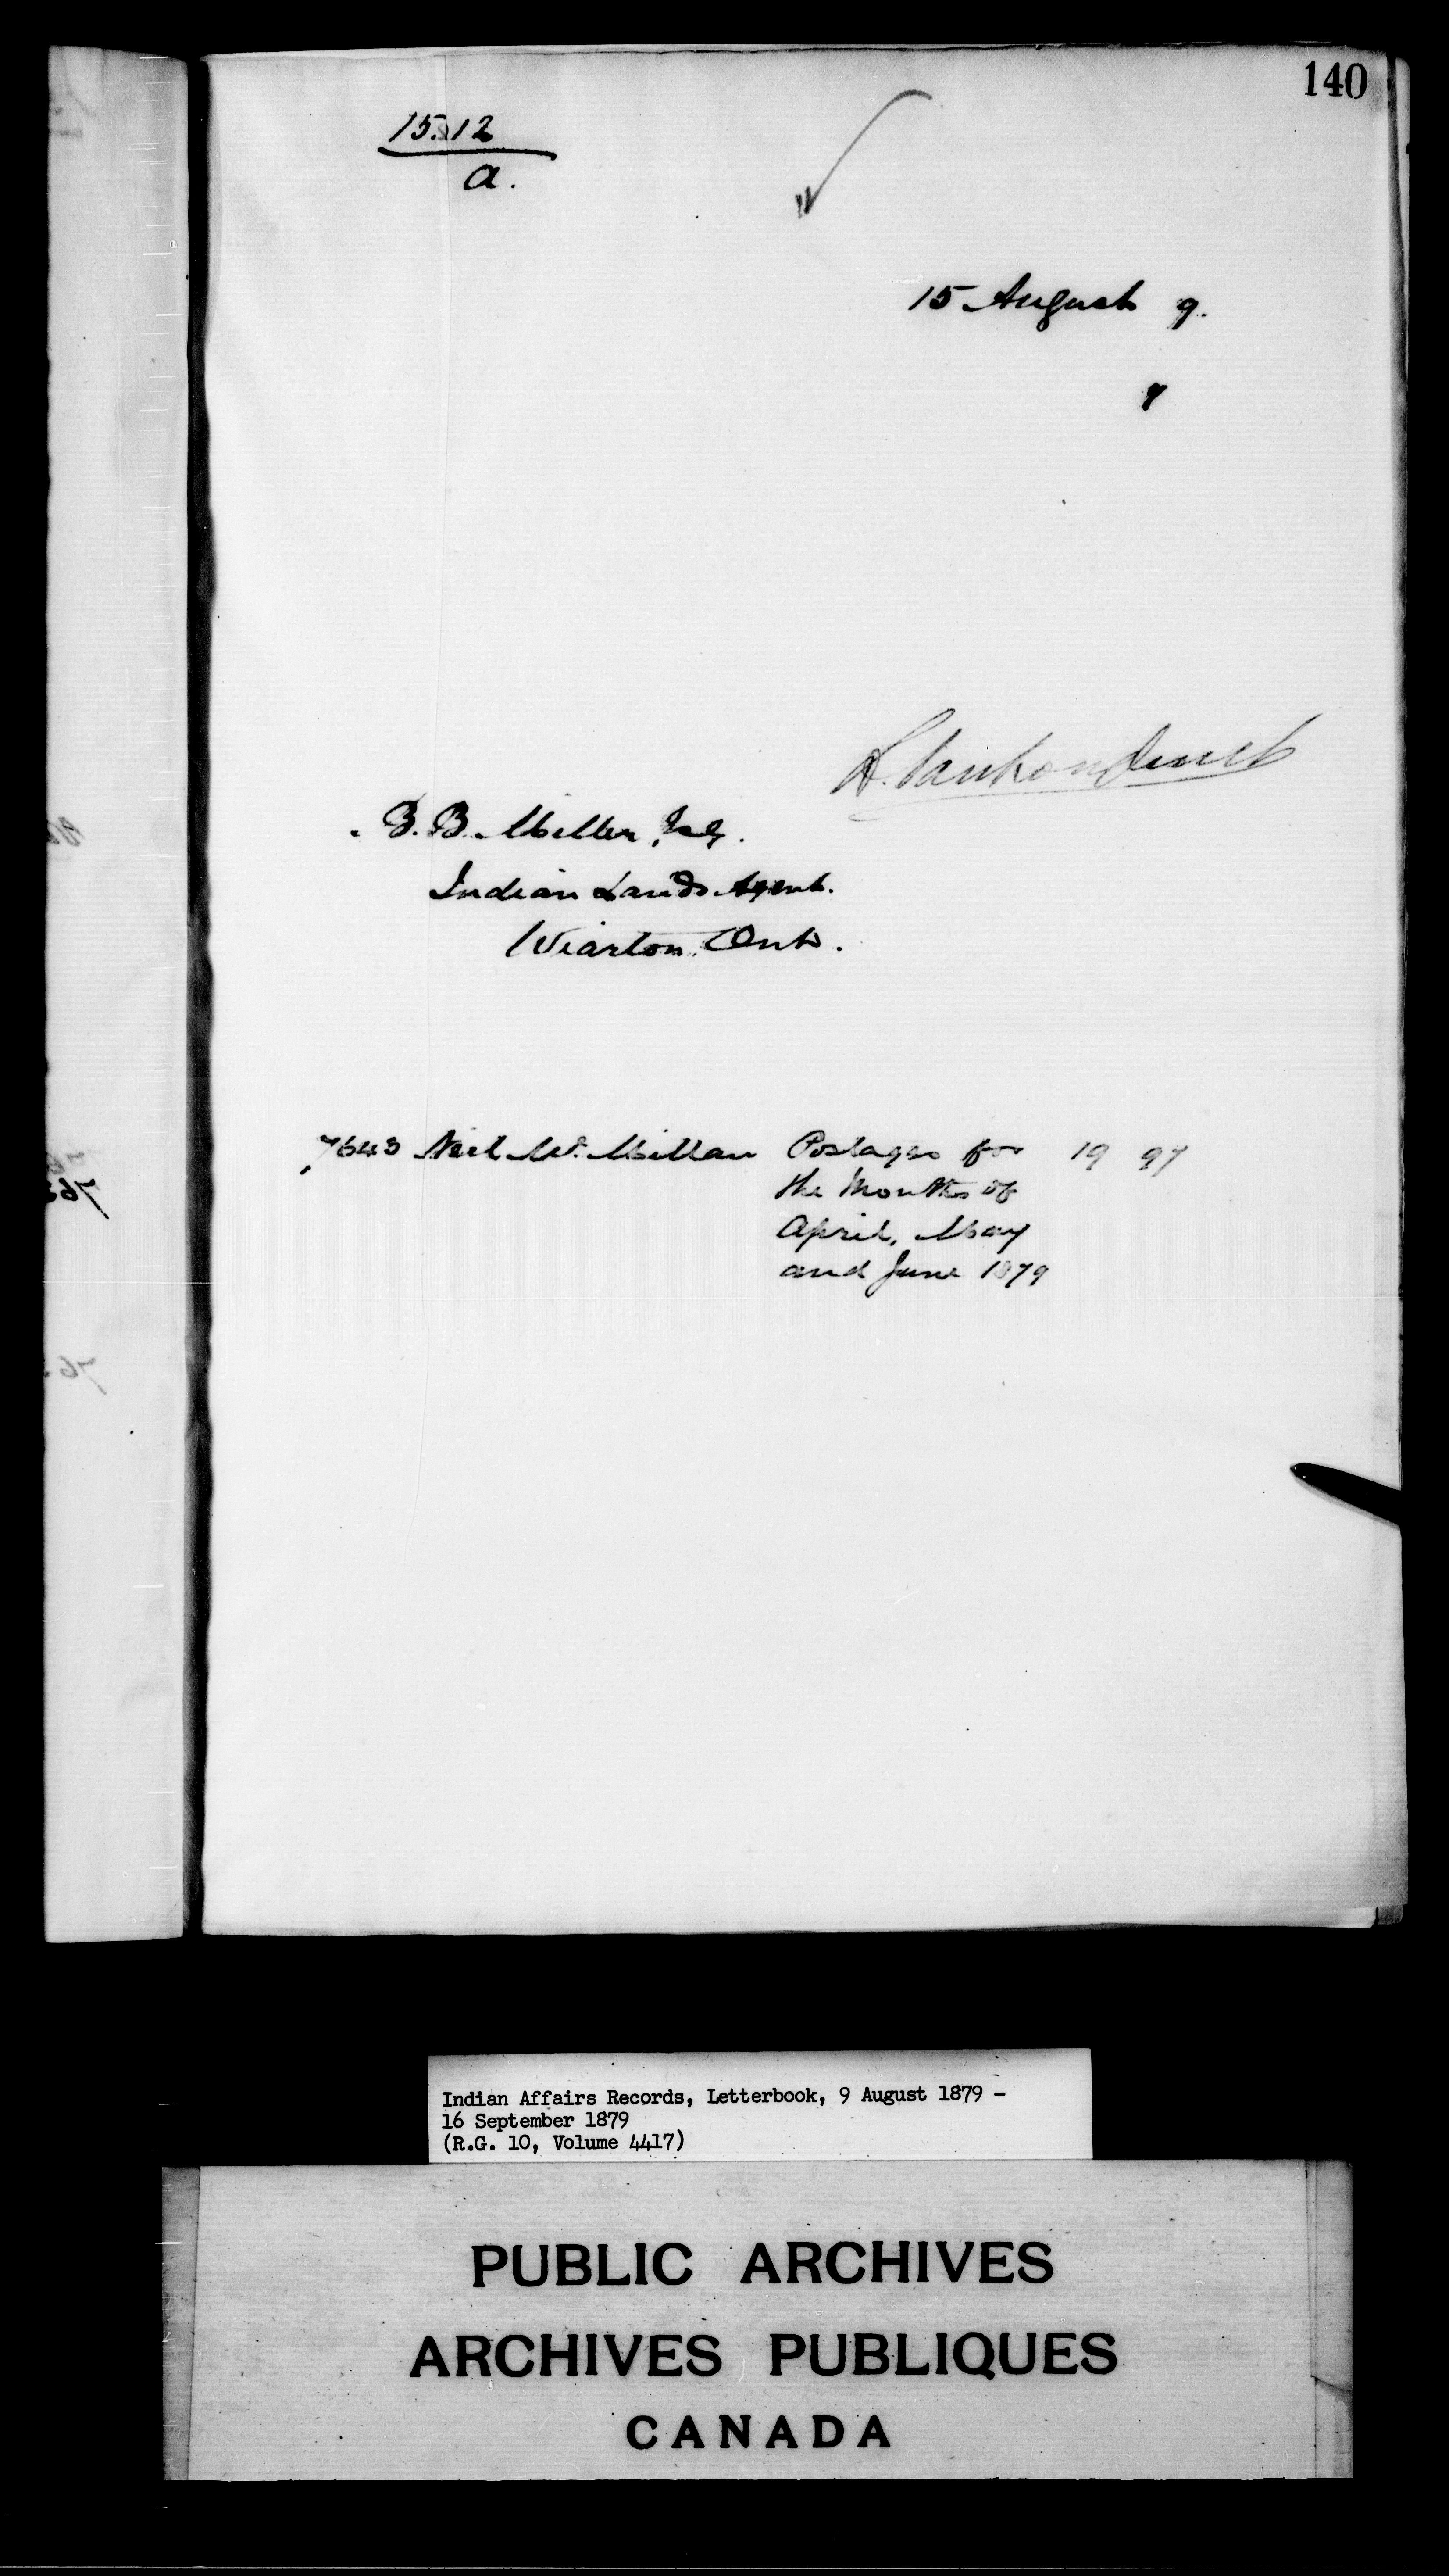 140
15.12
a.
15 August 9.
7
L. Vankoughnet
B. B. Miller, Esq.
Indian Lands Agent.
Wiarton, Ont.
7643 Neil McMillan Postages for 19 97
the Months of
April, May
and June 1879
Indian Affairs Records, Letterbook, 9 August 1879 -
16 September 1879
(R.G. 10, Volume 4417)
PUBLIC ARCHIVES
ARCHIVES PUBLIQUES
CANADA